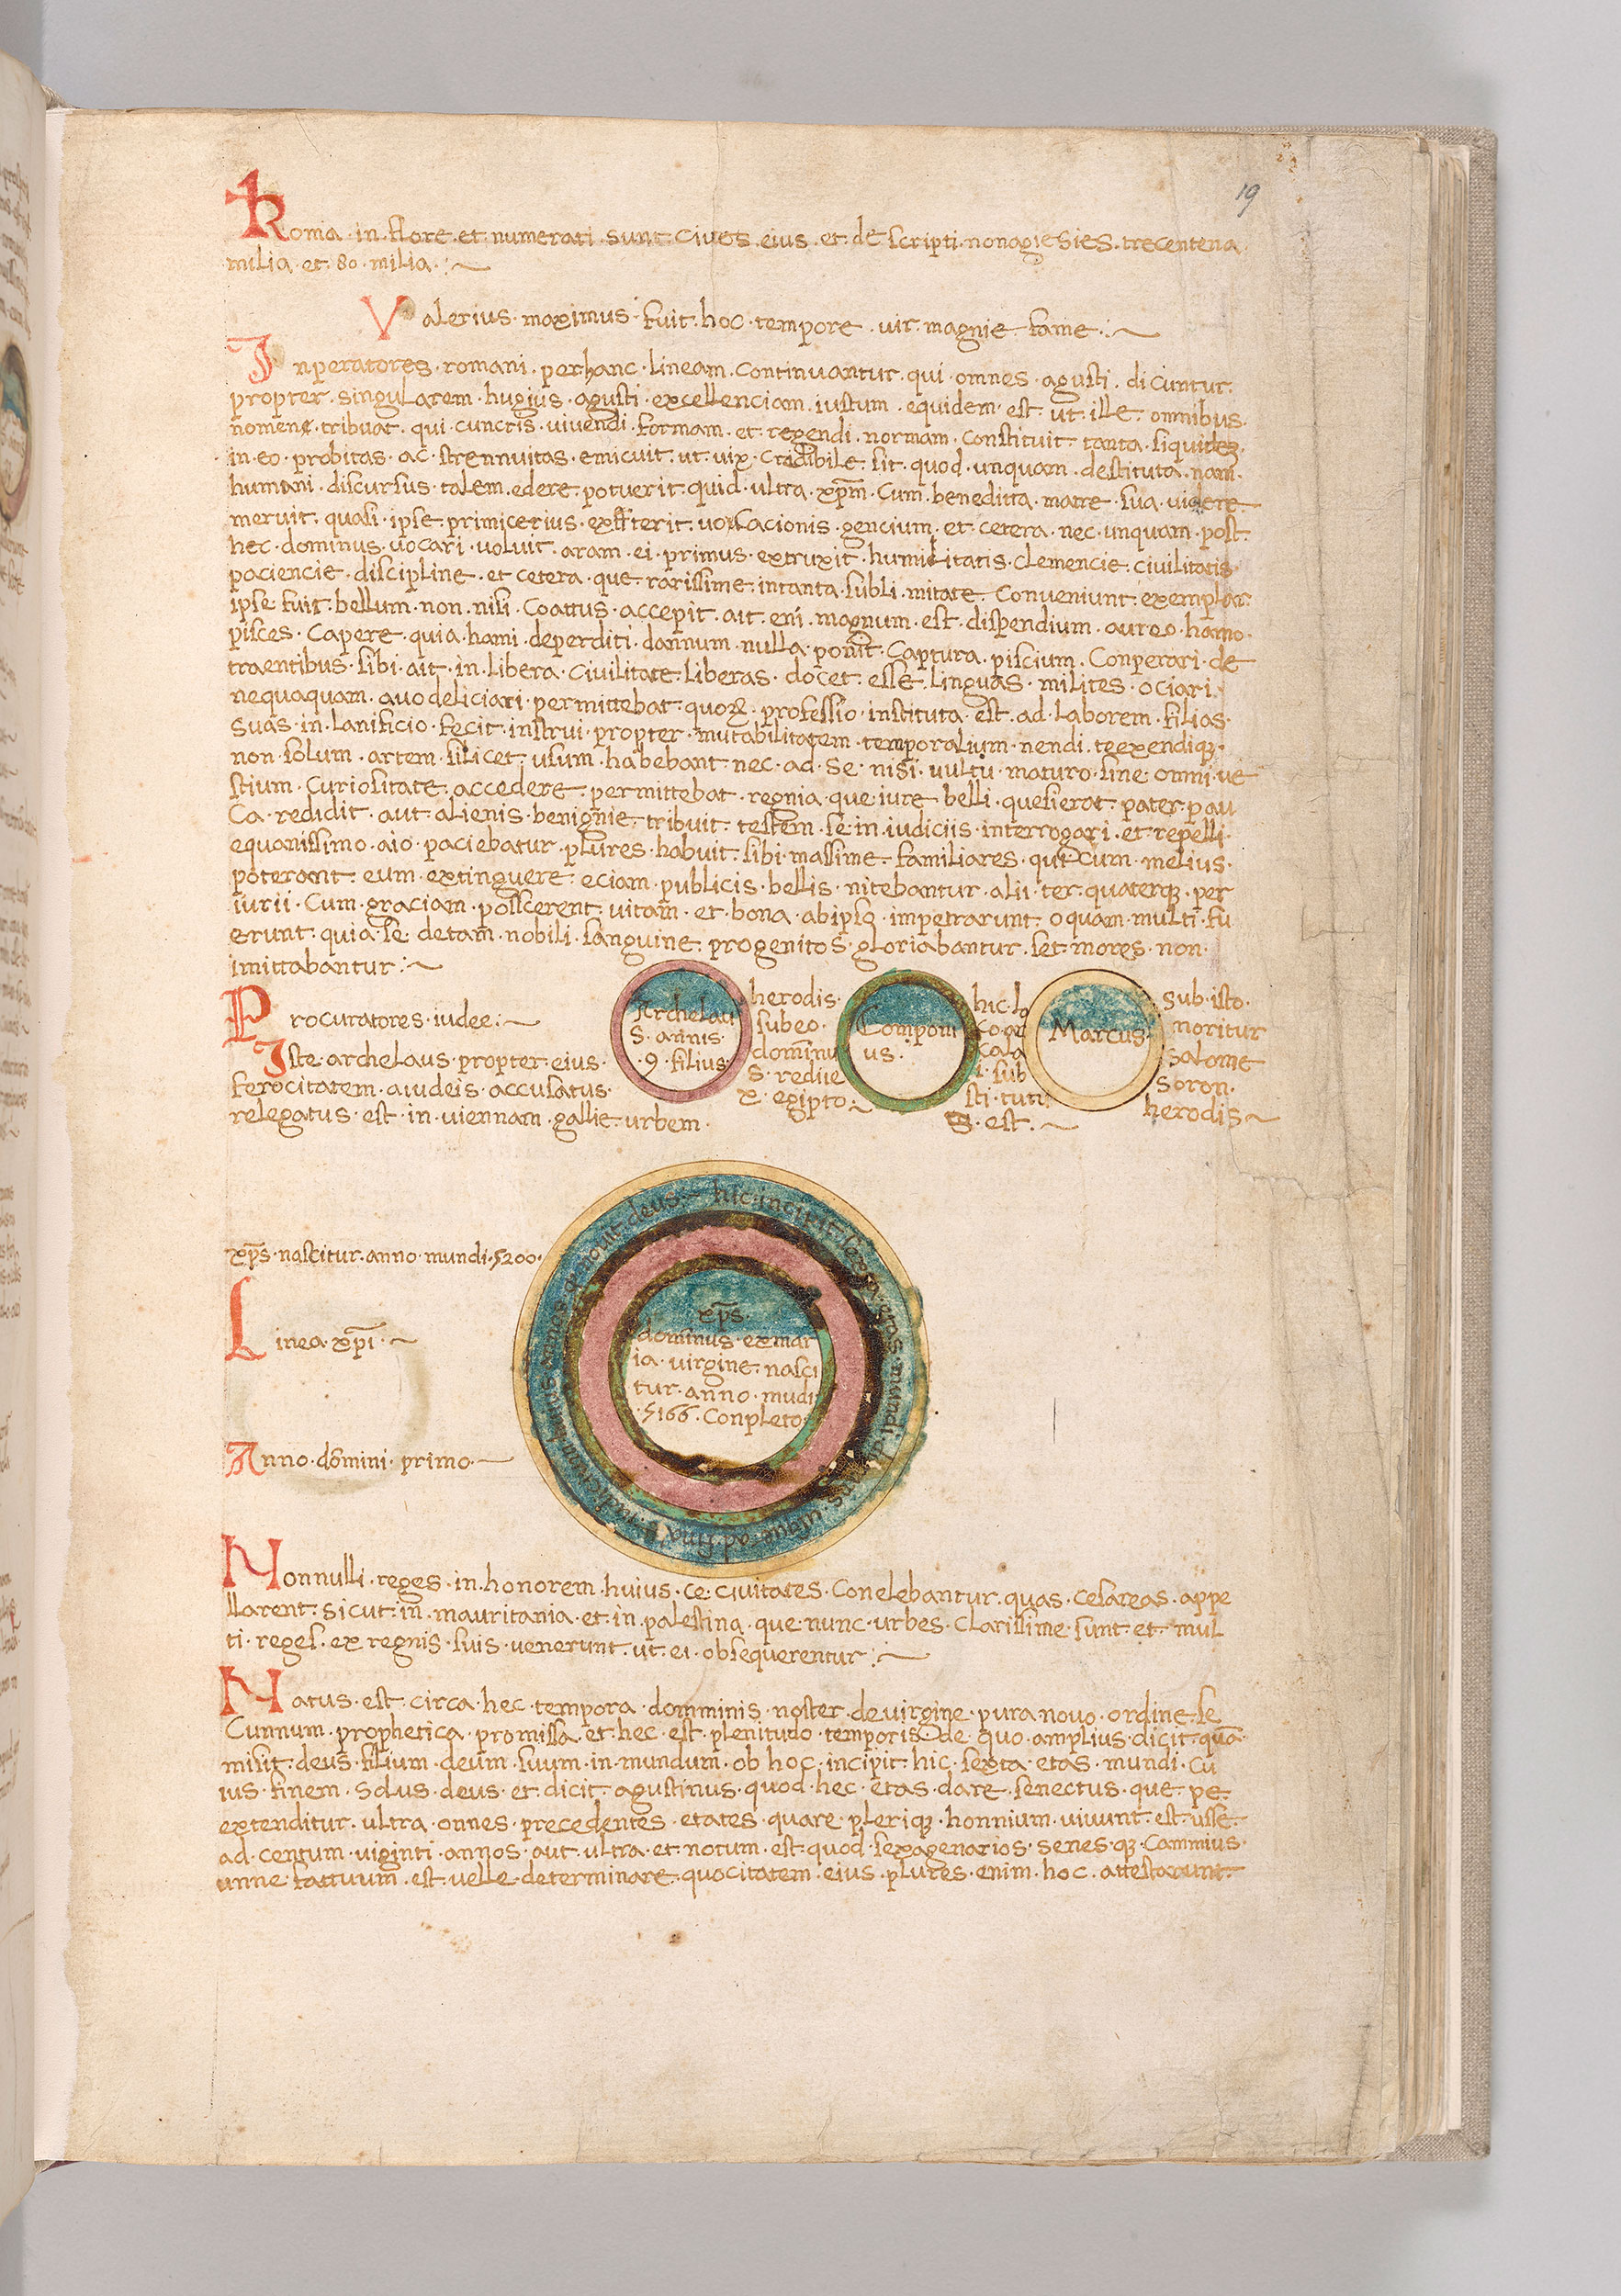 19
Roma · in · flore · et · numerati · sunt · cives · eius · et · de scripti · nonagiesies · trecentena
milia · et · 80 · milia
Valerius · maximus · fuit · hoc · tempore · vir · magnie · fame
Inperatores · romani · per hanc · lineam · continuantur · qui · omnes · agusti · dicuntur
propter · singularem · hugius · agusti · excellenciam · iustum · equidem · est · ut · ille · omnibus
nomene · tribuat · qui · cunctis · vivendi · formam · et · regendi · normam · constituit · tanta · siquidez
in · eo · probitas · ac · strennuitas · emicuit · ut · vix · credibile · sit · quod · unquam · destituta · nam
humani · discursus · talem · edere · potuerit · quid · ultra · xpm · cum · beneditta · matre · sua · videre
meruit · quasi · ipse · primicerius · vocacionis · gencium · et · cetera · nec · unquam · post
hec · dominus · vocari · voluit · aram · ei · primus · extruxit · humilitatis · clemencie · civilitatis
paciencie · discipline · et cetera · que · rarissime · in tanta · subli · mitate · conveniunt · exemplar
ipse fuit · bellum · non · nisi · coattus · accepit · ait · eni · magnum · est · dispendium · aureo · hamo
pisces · capere · quia · hami · deperditi · dannum · nulla · captura · piscium · conperari · de
traentibus · sibi · ait · in · libera · civilitate · liberas · docet · esse · linguas · milites · ociari
nequaquam · avo deliciari · permittebat · professio · instituta · est · ad · laborem · filias
suas · in · lanificio · fecit · instrui · propter · mutabilitatem · temporalium · nendi · teexendiq3
non · solum · artem · silicet · usum · habebant · nec · ad · se · nisi · vultu · maturo · sine · omni · ve
stium · curiositate · accedere · permittebat · regnia · que iure · belli · quesierat · pater · pau
ca · redidit · aut · alienis · benignie · tribuit · testem · se in · iudiciis · interrogari · et · repelli
equanissimo · aio · paciebatur · plures · habuit · sibi · massime · familiares · qui · cum · melius
poterant · eum · extinguere · eciam · publicis · bellis · nitebantur · alii · ter · quaterq3 · per
iurii · cum · graciam · posscerent · vitam · et · bona · ab ipso · impetrarunt · o quam · multi · fu
erunt · quia · se · de tam · nobili · sanguine · progenitos · gloriabantur · set · mores · non
imittabantur
Procuratores · iudee
Iste · archelaus · propter · eius
ferocitatem · a iudeis · accusatus
relegatus · est · in · viennam · gallie · urbem
Archelau
s · annis
· 9 · filius
herodis
sub eo
dominu
s · rediie
x · egipto
Componi
us
hic · l
sti · tutu
s · est
Marcus
sub · isto
noritur
salome
soron
herodis
hic · incipit · sexta · etas · mundi · usque · ad · finem · deus
xps · nascitur · anno · mundi · 5200
Linea · xpi
Anno · domini · primo
xps
dominus · ex mar
ia · virgine · nasci
tur · anno · mudi
· 5166 · conpleto
Nonnulli · reges · in · honorem · huius · ce · civitates · conelebantur · quas · cesareas · appe
llarent · sicut · in · mauritania · et · in · palestina · que · nunc · urbes · clarissime · sunt · et · mul
ti · reges · ex regnis · suis · venerunt · ut · ei · obsequerentur
Natus · est · circa · hec · tempora · domminis · noster · de virgine · pura novo · ordine · se
cunnum · prophetica · promissa · et · hec · est · plenitudo · temporis · de · quo · amplius · dicit · qua
misit · deus · filium · deum · suum · in · mundum · ob hoc · incipit · hic · sexta · etas · mundi · cu
ius · finem · solus · deus · et · dicit · agustinus · quod · hec · etas · dare · senectus · que · pe
extenditur · ultra · onnes · precedentes · etates · quare · pleriq3 · honnium · vivunt · est · usse
ad · centum · viginti · annos · aut · ultra · et · notum · est · quod · sexagenarios · senes · q3 · cammius
unne · fattuum · est · velle · determinare · quocitatem · eius · plures · enim · hoc · attestarunt